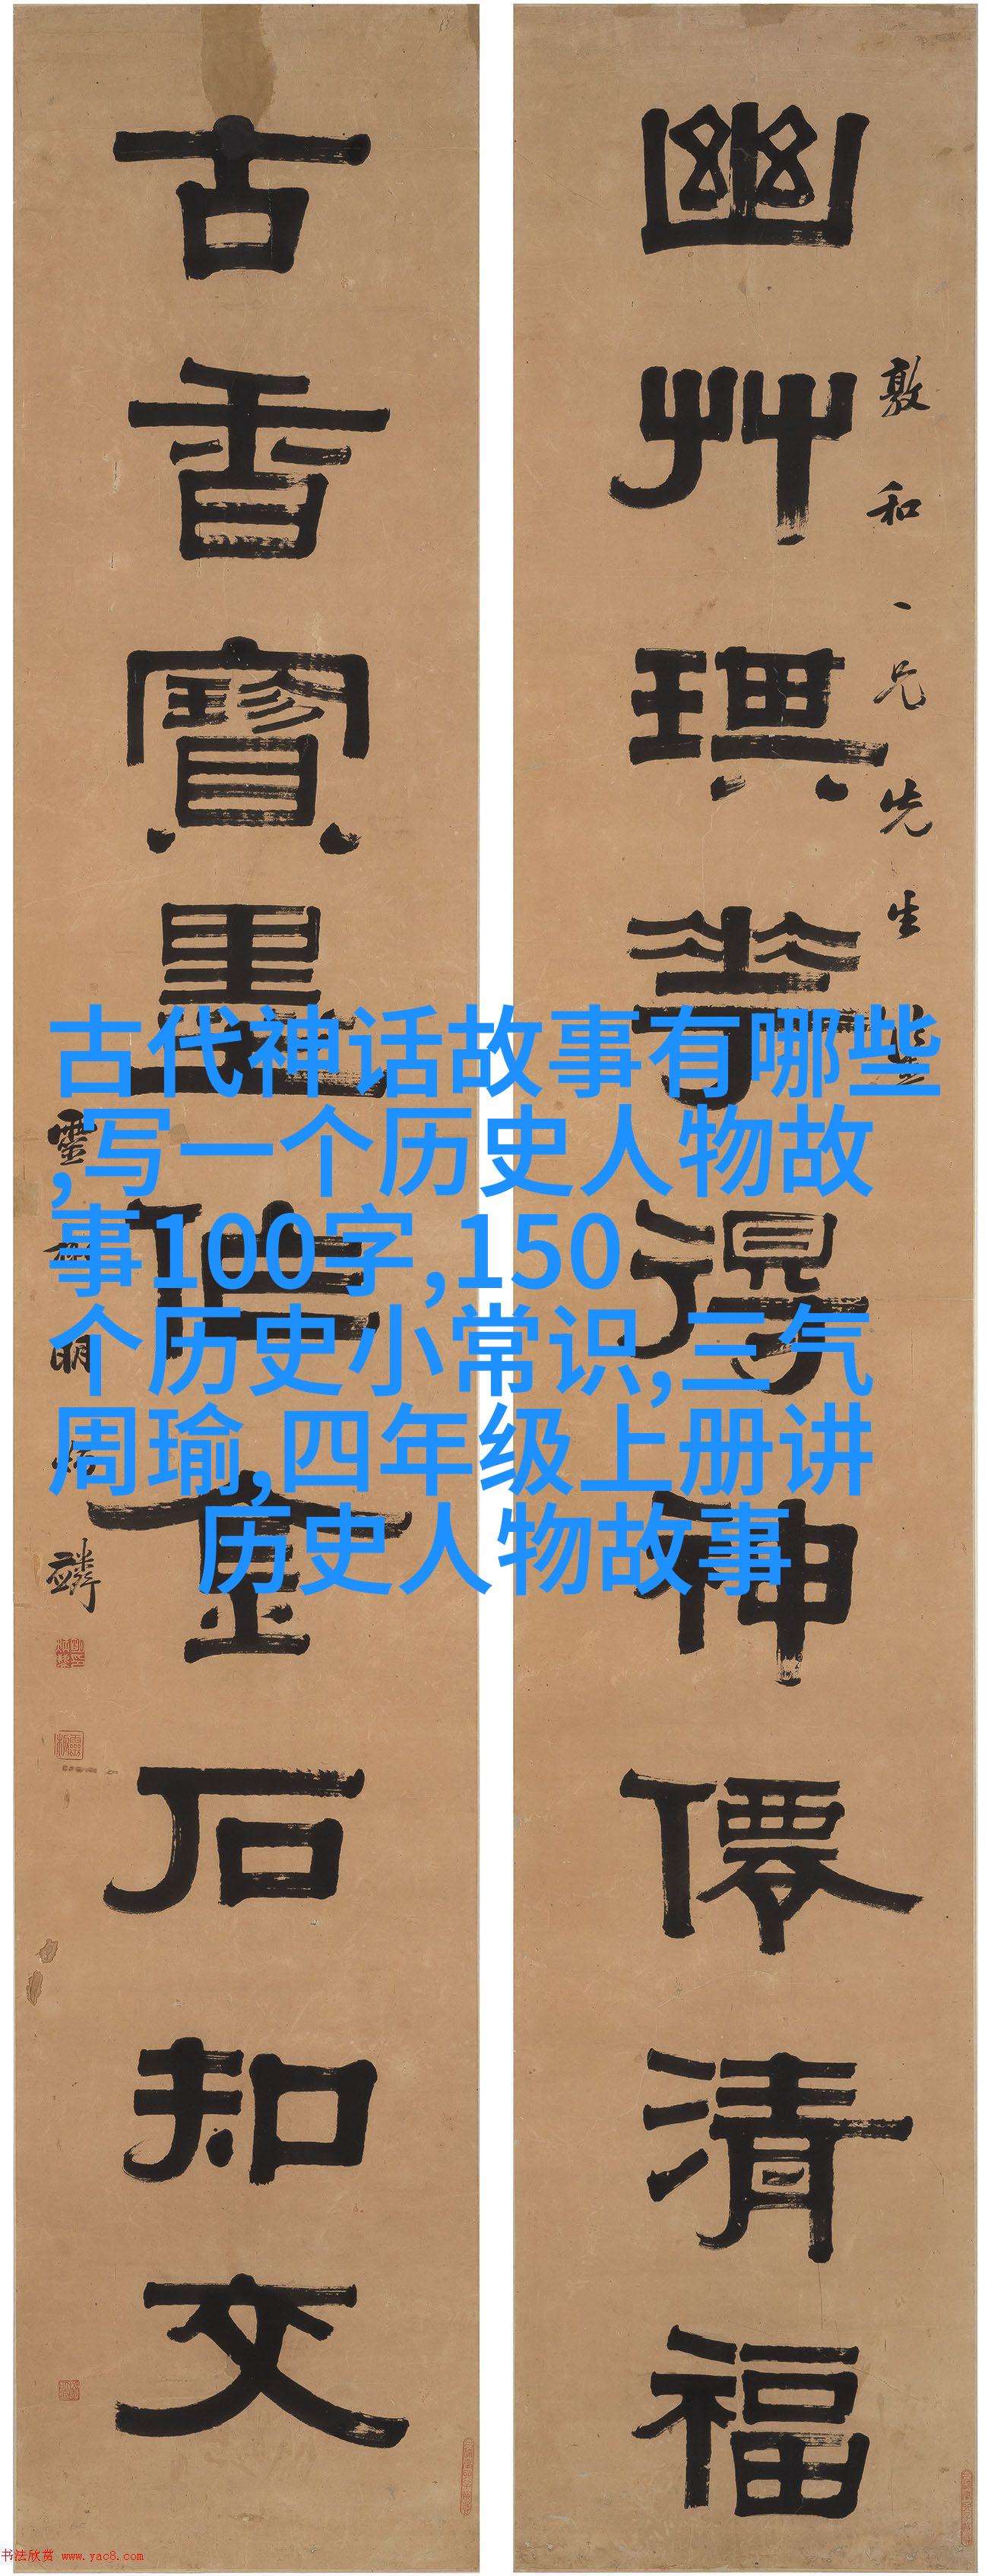 幽艸琪華得神僊清福
敦和一兄先生
古香寶墨金石知交
靈明炳麟
古代神话故事有哪些
,写一个历史人物故
事100字,150
个历史小常识,三气
周瑜,四年级上册讲
历史人物故事
书法欣赏 www.yac8.com